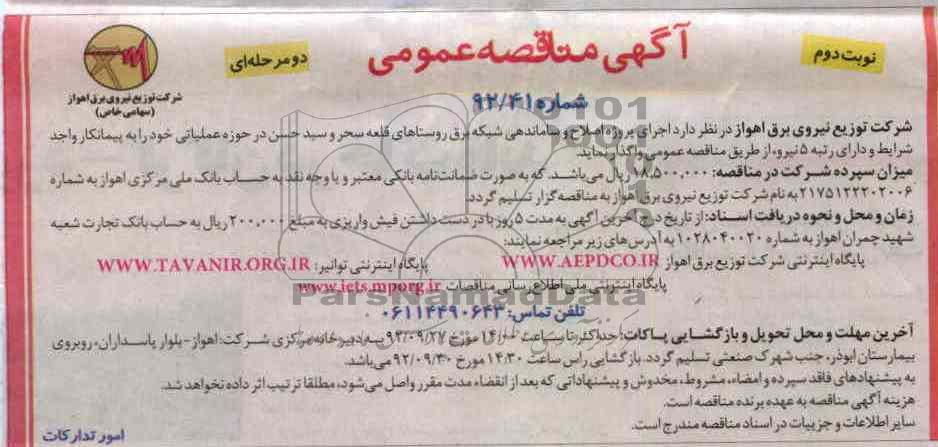 نوبت دوم
آگهی مناقصه عمومی
دو مرحله‌ای
شرکت توزیع نیروی برق اهواز
(سهامی خاص)
شماره ۹۲/۴۱
شرکت توزیع نیروی برق اهواز در نظر دارد اجرای پروژه اصلاح و ساماندهی شبکه برق روستاهای قلعه سحر و سید حسن در حوزه عملیاتی خود را به پیمانکار واجد
شرایط و دارای رتبه ۵ نیرو، از طریق مناقصه عمومی واگذار نماید.
میزان سپرده شرکت در مناقصه: ۱۸,۵۰۰,۰۰۰ ریال می‌باشد. که به صورت ضمانت‌نامه بانکی معتبر و یا وجه نقد به حساب بانک ملی مرکزی اهواز به شماره
۲۱۷۵۱۲۲۲۰۲۰۰۶ به نام شرکت توزیع نیروی برق اهواز به مناقصه‌گزار تسلیم گردد.
زمان و محل و نحوه دریافت اسناد: از تاریخ درج آخرین آگهی به مدت ۵ روز با در دست داشتن فیش واریزی به مبلغ ۲۰۰,۰۰۰ ریال به حساب بانک تجارت شعبه
شهید چمران اهواز به شماره ۱۰۲۸۰۴۰۰۲۰ به آدرس‌های زیر مراجعه نمایند:
پایگاه اینترنتی شرکت توزیع برق اهواز WWW.AEPDCO.IR پایگاه اینترنتی توانیر: WWW.TAVANIR.ORG.IR
پایگاه اینترنتی ملی اطلاع رسانی مناقصات www.iets.mporg.ir
ParsNamadData
تلفن تماس: ۰۶۱۱۴۴۹۰۶۴۳
آخرین مهلت و محل تحویل و بازگشایی پاکات: حداکثر تا ساعت ۱۴ مورخ ۹۲/۰۹/۲۷ به دبیرخانه مرکزی شرکت: اهواز- بلوار پاسداران، روبروی
بیمارستان ابوذر، جنب شهرک صنعتی تسلیم گردد. بازگشایی راس ساعت ۱۴:۳۰ مورخ ۹۲/۰۹/۳۰ می‌باشد.
به پیشنهادهای فاقد سپرده و امضاء، مشروط، مخدوش و پیشنهاداتی که بعد از انقضاء مدت مقرر واصل می‌شود، مطلقا ترتیب اثر داده نخواهد شد.
هزینه آگهی مناقصه به عهده برنده مناقصه است.
سایر اطلاعات و جزییات در اسناد مناقصه مندرج است.
امور تدارکات